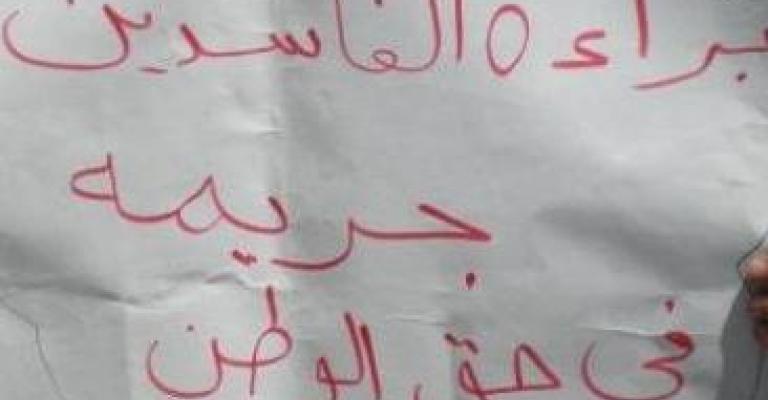 براءة الفاسدين
جريمه
فى حق الوطن